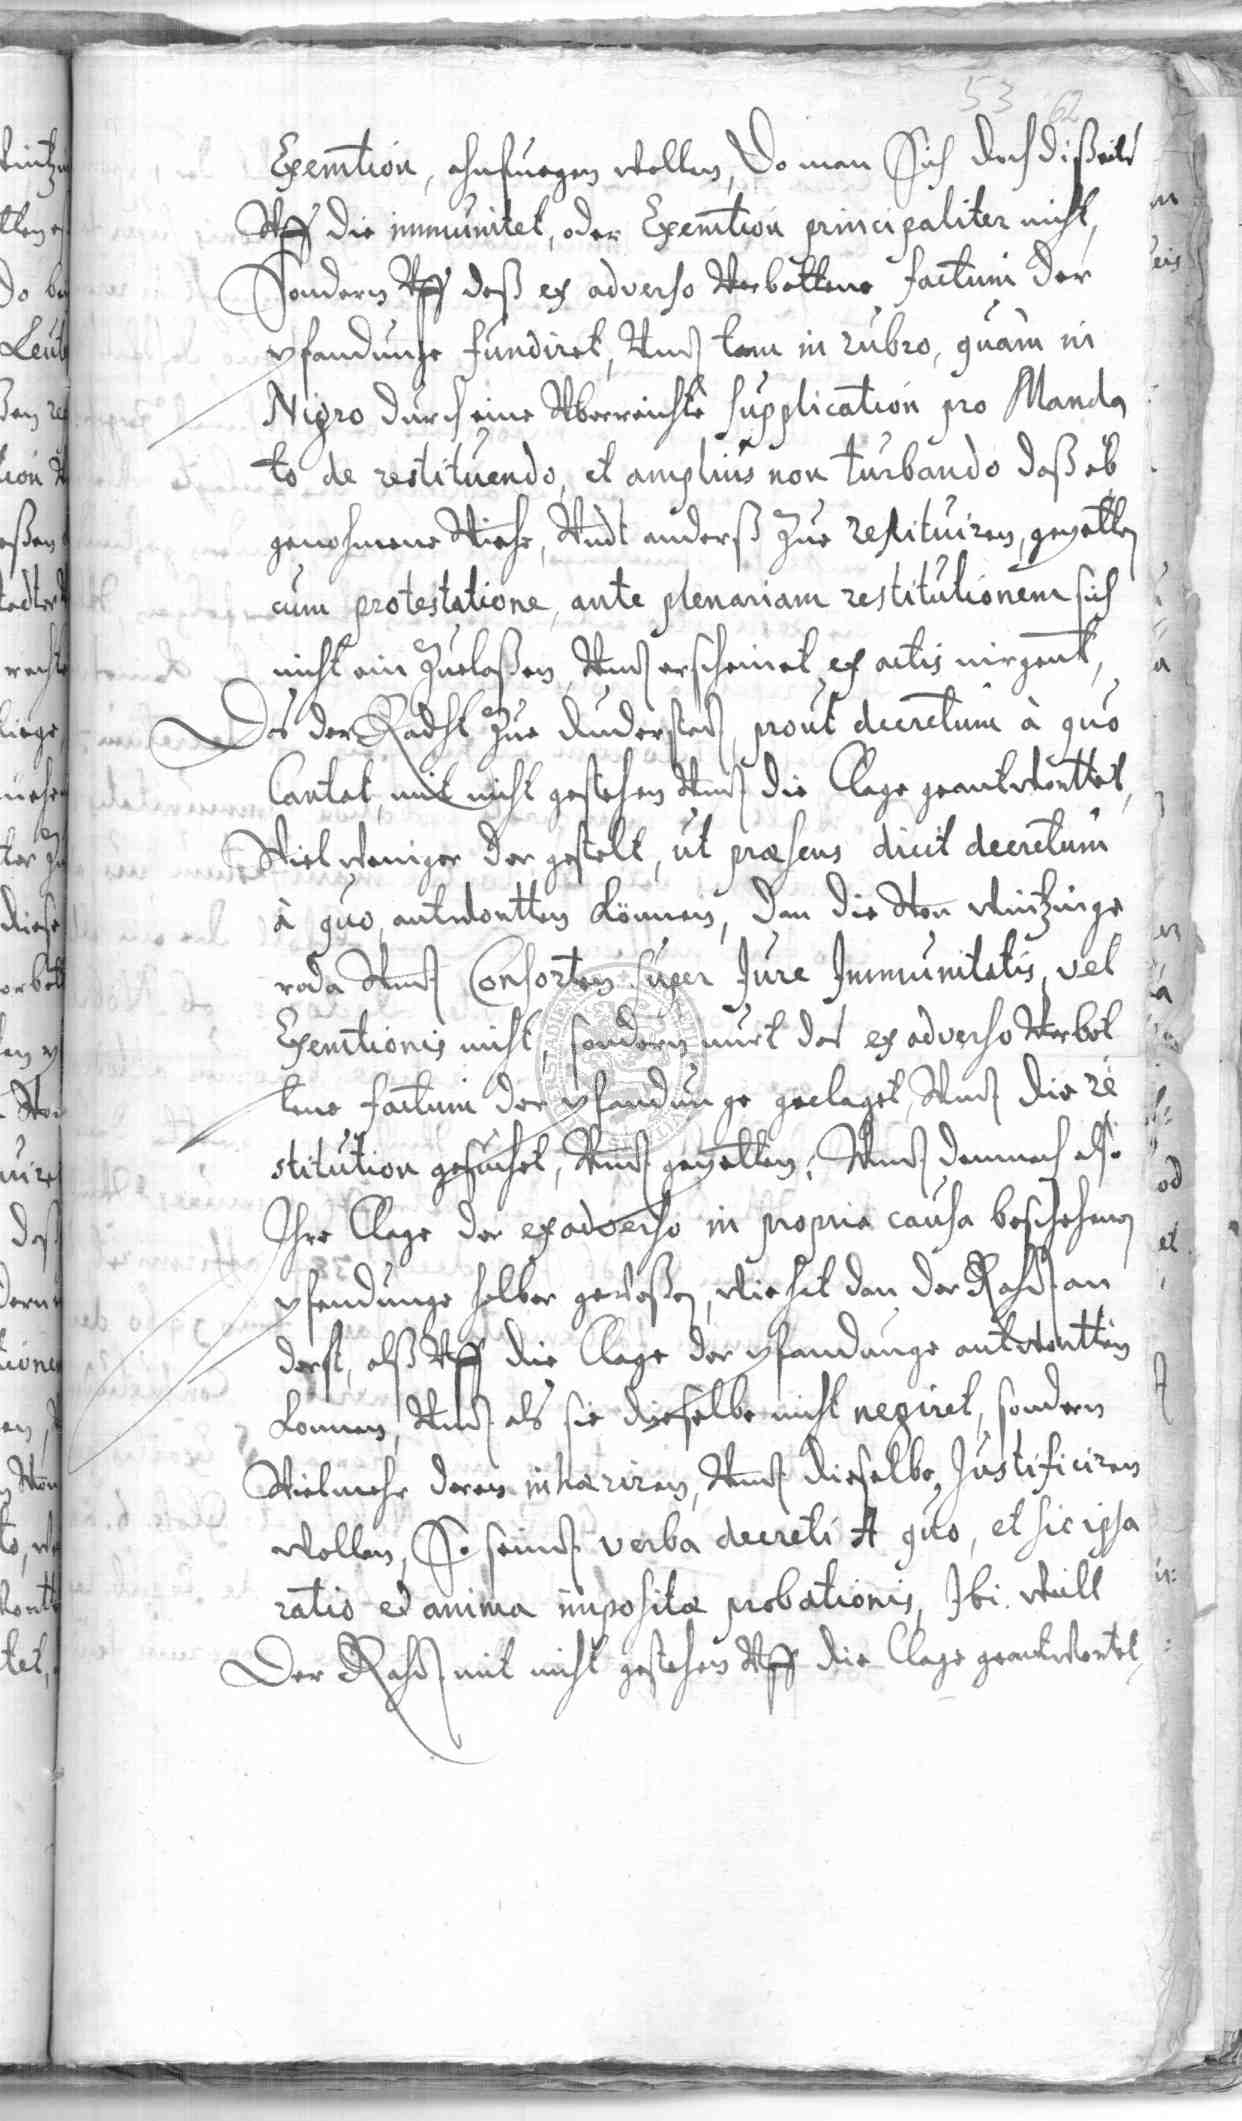 53 62
Exemtion, ahnfuegen wollen, Do man Sich doch dißeits
Uff die immunitet, oder Exemtion principaliter nicht,
Sondern Uff daß ex adverso Verbottene factum der
pfandunge fundiret, Undt tam in rubro, quàm in
Nigro durch eine Uberreichte supplication pro Manda
to de restituendo, et amplius non turbando daß ab
genohmene Viehe, Undt anderß Zue restituiren, gepetten
cum protestatione, ante plenariam restitutionem sich
nicht ein Zuelaßen, Undt erscheinet ex actis nirgent,
Das der Radht Zue Duderstadt, prout decretum à quo
Cantat, mit nicht gestehen Undt die Clage geantworttet,
Viel weniger der gestelt, ut praesens dicit decretum
à quo, antwortten können, dan die Von Wintzinge
roda Undt Consorten super Jure Immunitatis, vel
Exemtionis nicht, sondern nurt das ex adverso Verbot
tene factum der pfandunge geclaget, Undt die re
stitution gesuchet, Undt gepetten, Undt demnach also
Ihre Clage der ex adverso in propria causa beschehenen
pfandunge selber gewesen, Wie hat dan der Rahdt an
derst, alß Uff die Clage der pfandunge antwortten
können, Undt als sie dieselbe nicht negiret, sondern
Vielmehr deren inhaeriren, Undt dieselbe Justificiren
wollen, So seindt verba decreti A quo, et sic ipsa
ratio et anima impositae probationis, Ibi. Weill
Der Rahdt mit nicht gestehen Uff die Clage geantwortet,